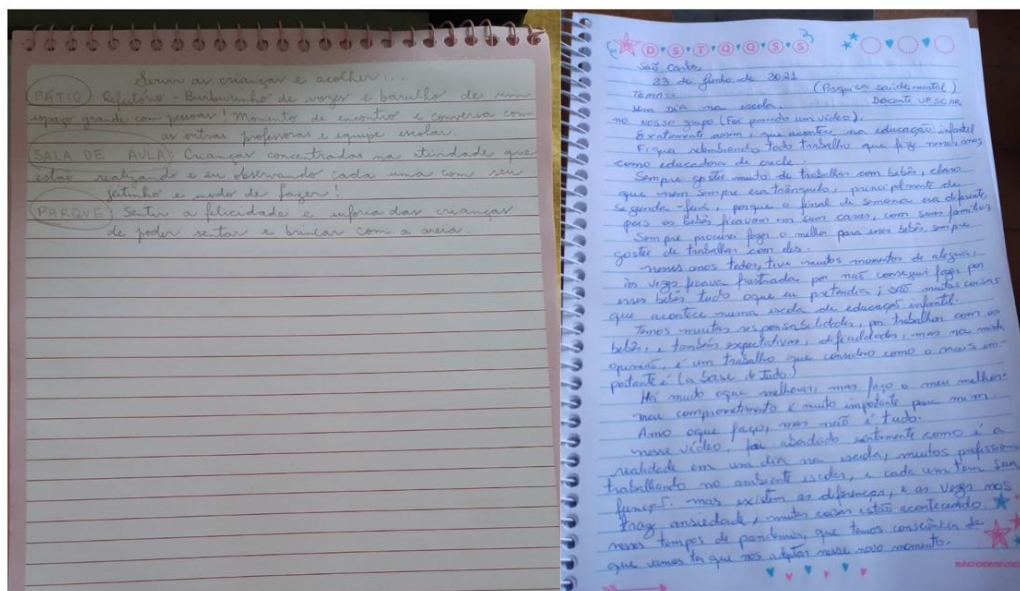 Servir as crianças e acolher...
(PÁTIO) Refeitório - Burburinho de vozes e barulho de um
espaço grande com pessoas! Momento de encontro e conversa com
as outras professoras e equipe escolar.
SALA DE AULA: Crianças concentradas na atividade que
estão realizando e eu observando cada uma com seu
jeitinho e modo de fazer!
(PARQUE): Sentir a felicidade e euforia das crianças
de poder sentar e brincar com a areia.
D S T Q Q S S
São Carlos,
23 de junho de 2021
Tema: (Pesquisa saúde mental)
um DIA na escola. Docente UFSCAR
no nosso grupo (Foi passado um vídeo).
Exatamente assim, que acontece na educação infantil
Fiquei relembrando todo trabalho que fiz nesses anos
como educadora de creche.
Sempre gostei muito de trabalhar com bebês, claro
que nem sempre era tranquilo, principalmente de
segunda-feira, porque o final de semana era diferente
pois os bebês ficavam em suas casas, com suas famílias
Sempre procurei fazer o melhor para esses bebês, sempre
gostei de trabalhar com eles.
nesses anos todos, tive muitos momentos de alegria,
às vezes ficava frustrada por não conseguir fazer por
esses bebês tudo oque eu pretendia; são muitas coisas
que acontece numa escola de educação infantil.
Temos muitas responsabilidades, por trabalhar com os
bebês, e também expectativas, dificuldades, mas na minha
opinião, é um trabalho que considero como o mais im-
portante é (a base de tudo)
Há muito oque melhorar, mas faço o meu melhor.
meu comprometimento é muito importante para mim.
Amo oque faço, mas não é tudo.
nesse vídeo, foi abordado exatamente como é a
realidade em um dia na escola, muitos profissionais
trabalhando no ambiente escolar, e cada um tem sua
função. mas existem as diferenças, e as vezes nos
traz ansiedade, muitas coisas estão acontecendo
nesses tempos de pandemia, que temos consciência de
que vamos ter que nos adaptar nesse novo momento.
SÃO DOMINGOS